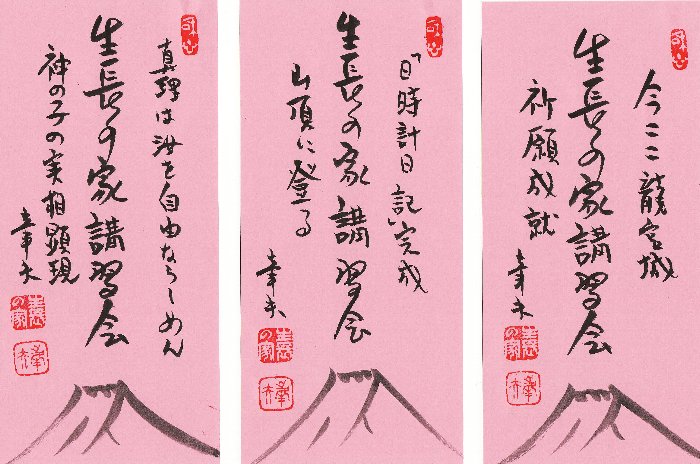 真理は汝を自由ならしめん
生長の家講習会
神の子の実相顕現
幸夫
「日時計日記」完成
生長の家講習会
山頂に登る
幸夫
今ここ龍宮城
生長の家講習会
祈願成就
幸夫